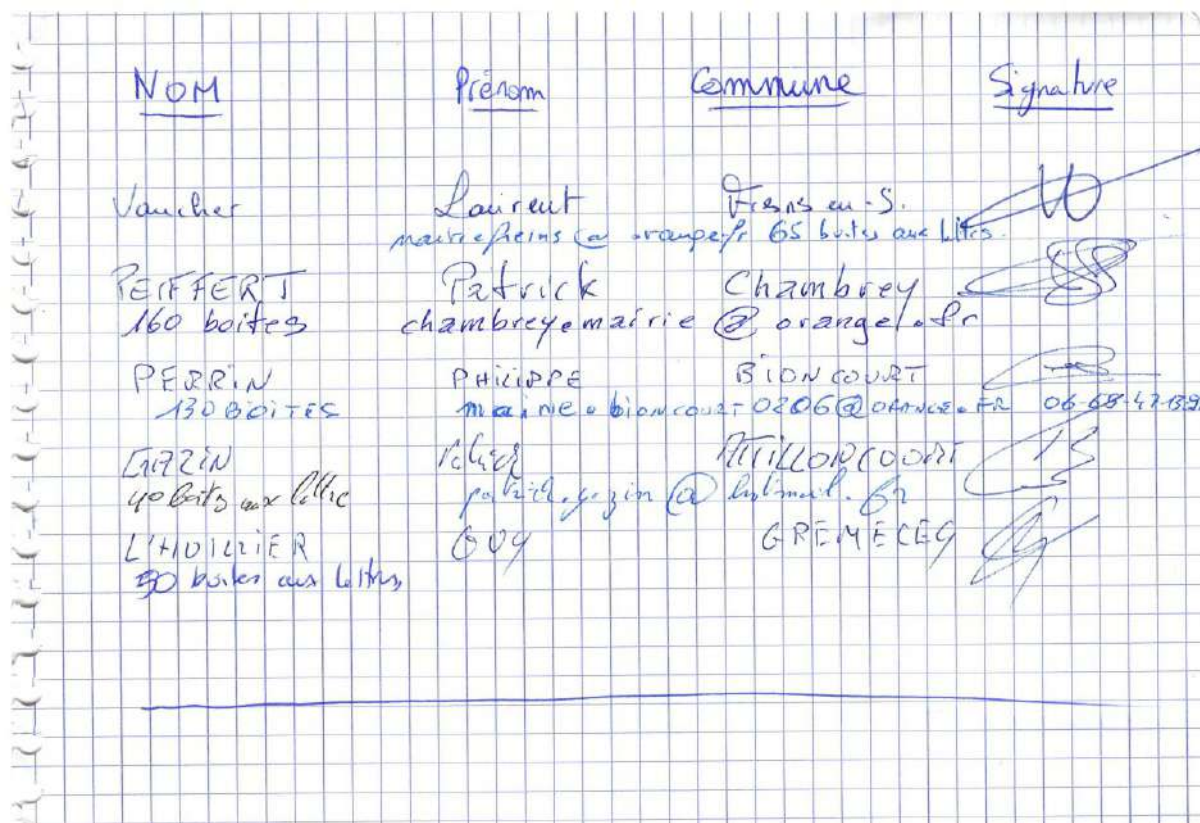 NOM Prénom Commune Signature
Vaucher Laurent en-S.
@ orange.fr 65 boites aux lettres.
PEIFFERT Patrick Chambrey
160 boites chambrey.mairie @ orange.fr
PERRIN PHILIPPE BIONCOURT
130 BOITES mairie.bioncourt0206@ORANGE.FR 06-68-47-
GAZIN ATTILLONCOURT
40 boites aux lettre patrick.gazin @ hotmail.fr
L'HUILLIER GUY GREMECEY
50 boites aux lettres